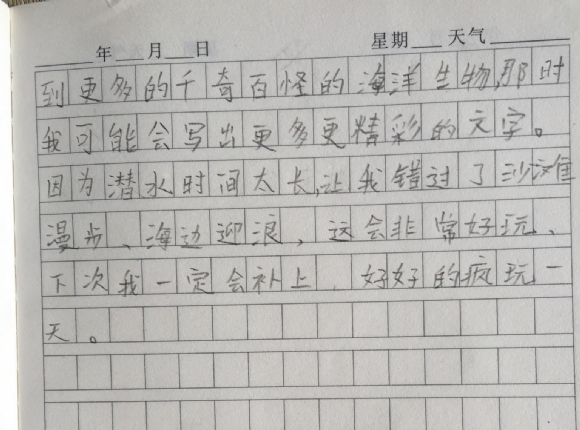 年 月 日 星期 天气
到更多的千奇百怪的海洋生物,那时
我可能会写出更多更精彩的文字。
因为潜水时间太长,让我错过了沙滩
漫步、海边迎浪,这会非常好玩、
下次我一定会补上,好好的疯玩一
天。